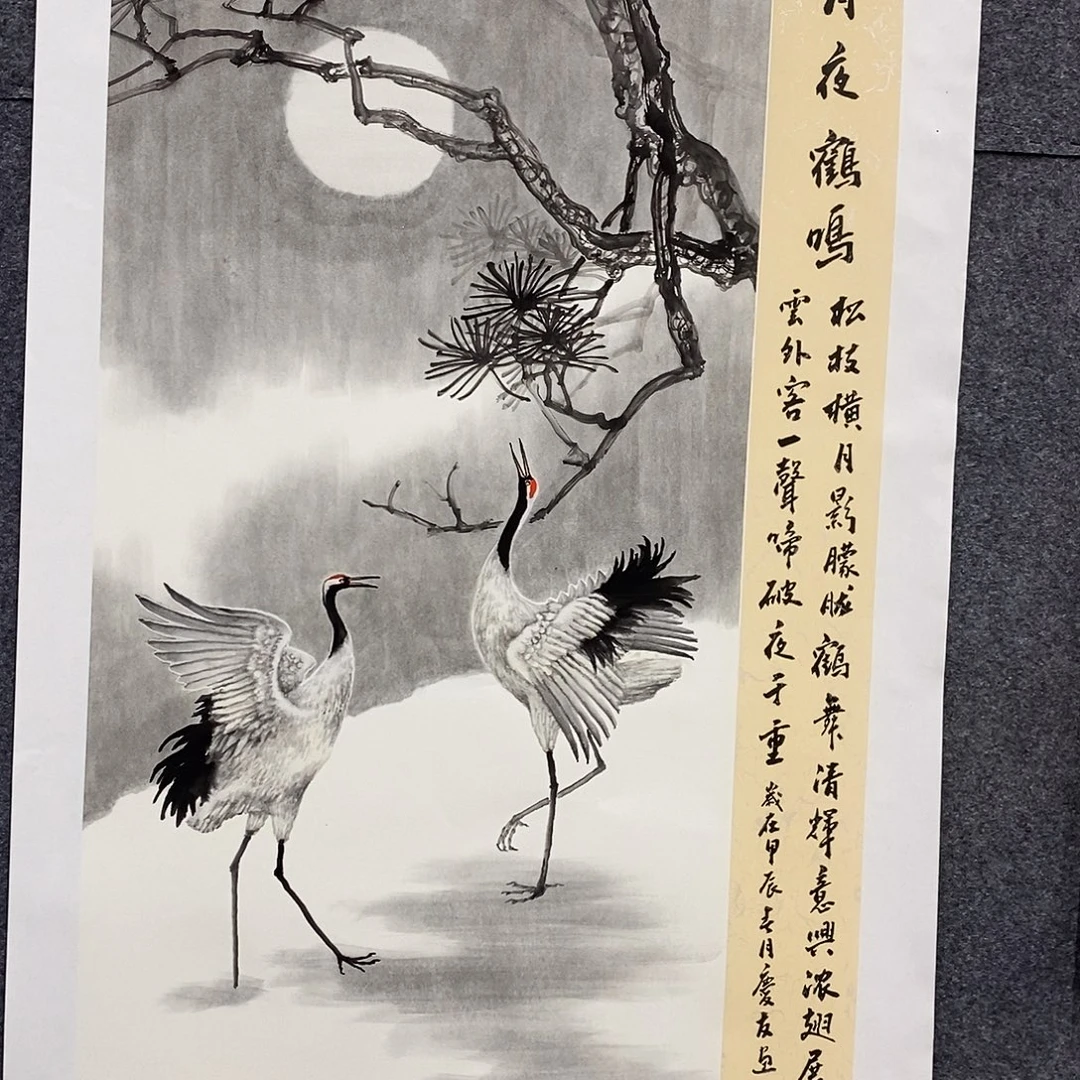 月夜鶴鳴
松枝横月影朦胧鶴舞清輝意興浓翅展
雲外客一聲啼破夜千重
歲在甲辰春月慶友画